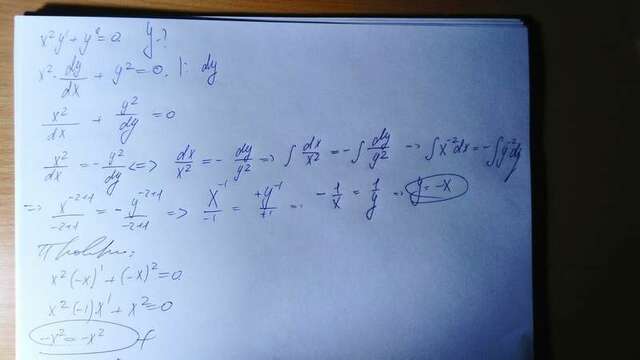 x²y' + y² = 0   y - ?
x² · dy/dx + y² = 0 · |: dy
x²/dx + y²/dy = 0
x²/dx = - y²/dy <=> dx/x² = - dy/y² => ∫ dx/x² = -∫ dy/y² -> ∫x⁻²dx = -∫y⁻²dy
=> x⁻²⁺¹/-2+1 = - y⁻²⁺¹/-2+1 => x⁻¹/-1 = +y⁻¹/+1 => - 1/x = 1/y => y = -x
Проверка:
x²(-x)' + (-x)² = 0
x²(-1)x' + x² = 0
-x² = -x²